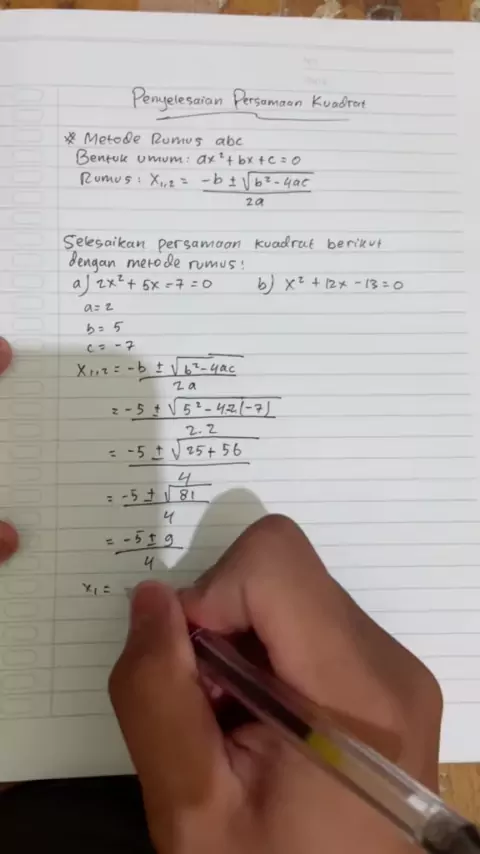 Penyelesaian Persamaan Kuadrat
* Metode Rumus abc
Bentuk umum: ax² + bx + c = 0
Rumus: X₁,₂ = -b ± √b² - 4ac
2a
Selesaikan persamaan kuadrat berikut
dengan metode rumus!
a) 2x² + 5x - 7 = 0 b) x² + 12x - 13 = 0
a = 2
b = 5
c = -7
X₁,₂ = -b ± √b² - 4ac
2a
= -5 ± √5² - 4.2(-7)
2.2
= -5 ± √25 + 56
4
= -5 ± √81
4
= -5 ± 9
4
x₁ =